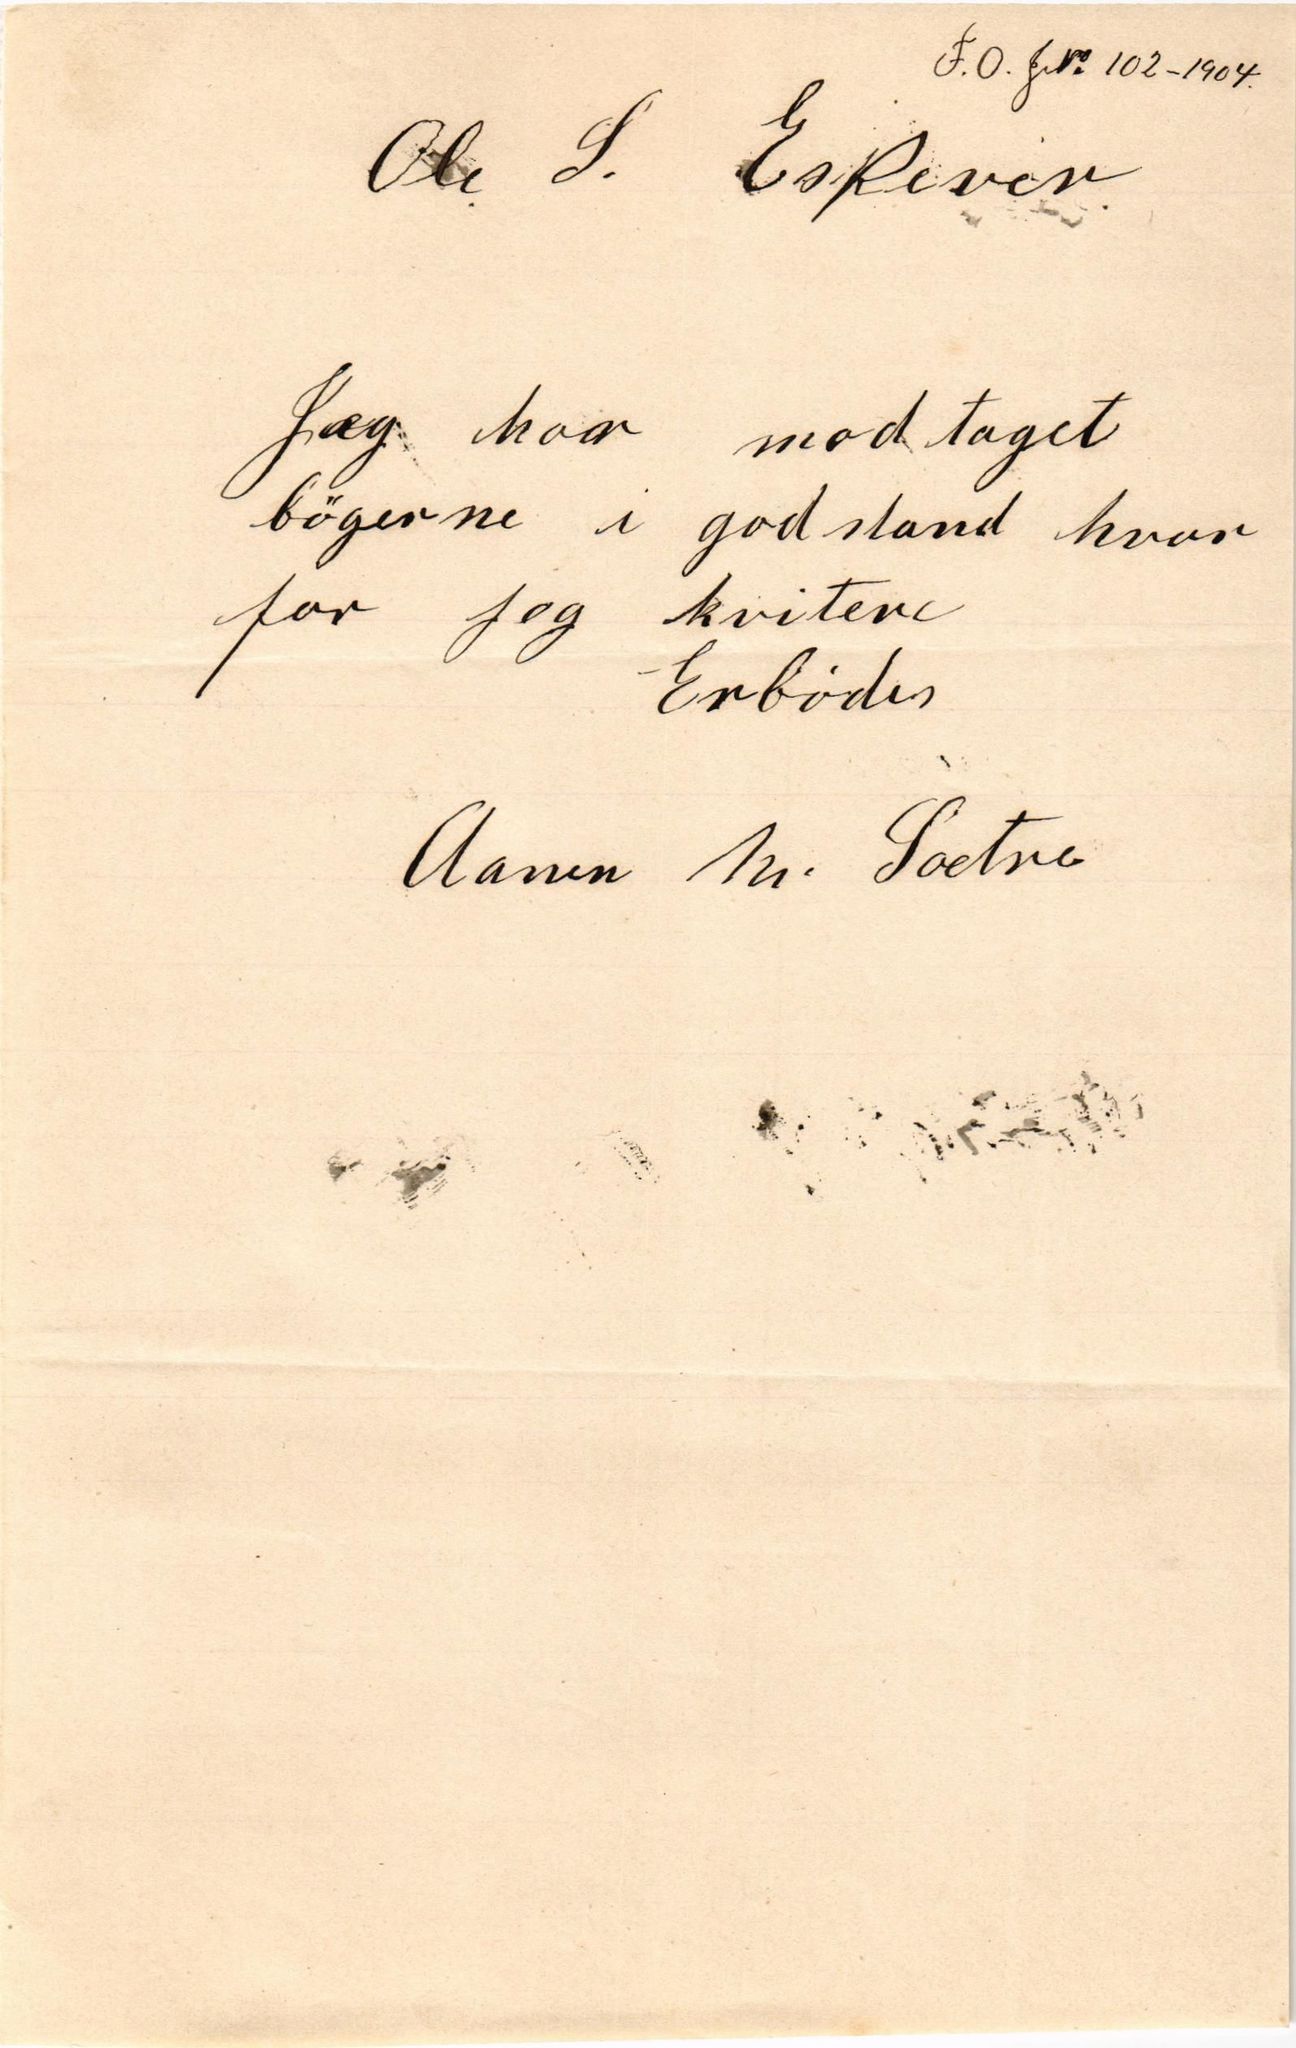 F.O. J.No. 102-1904.
Ole S. Eskevin
Jæg har mod taget
bögerne i god stand hvor
for jeg kvitere
Erbödes
Aanen M. Soetre